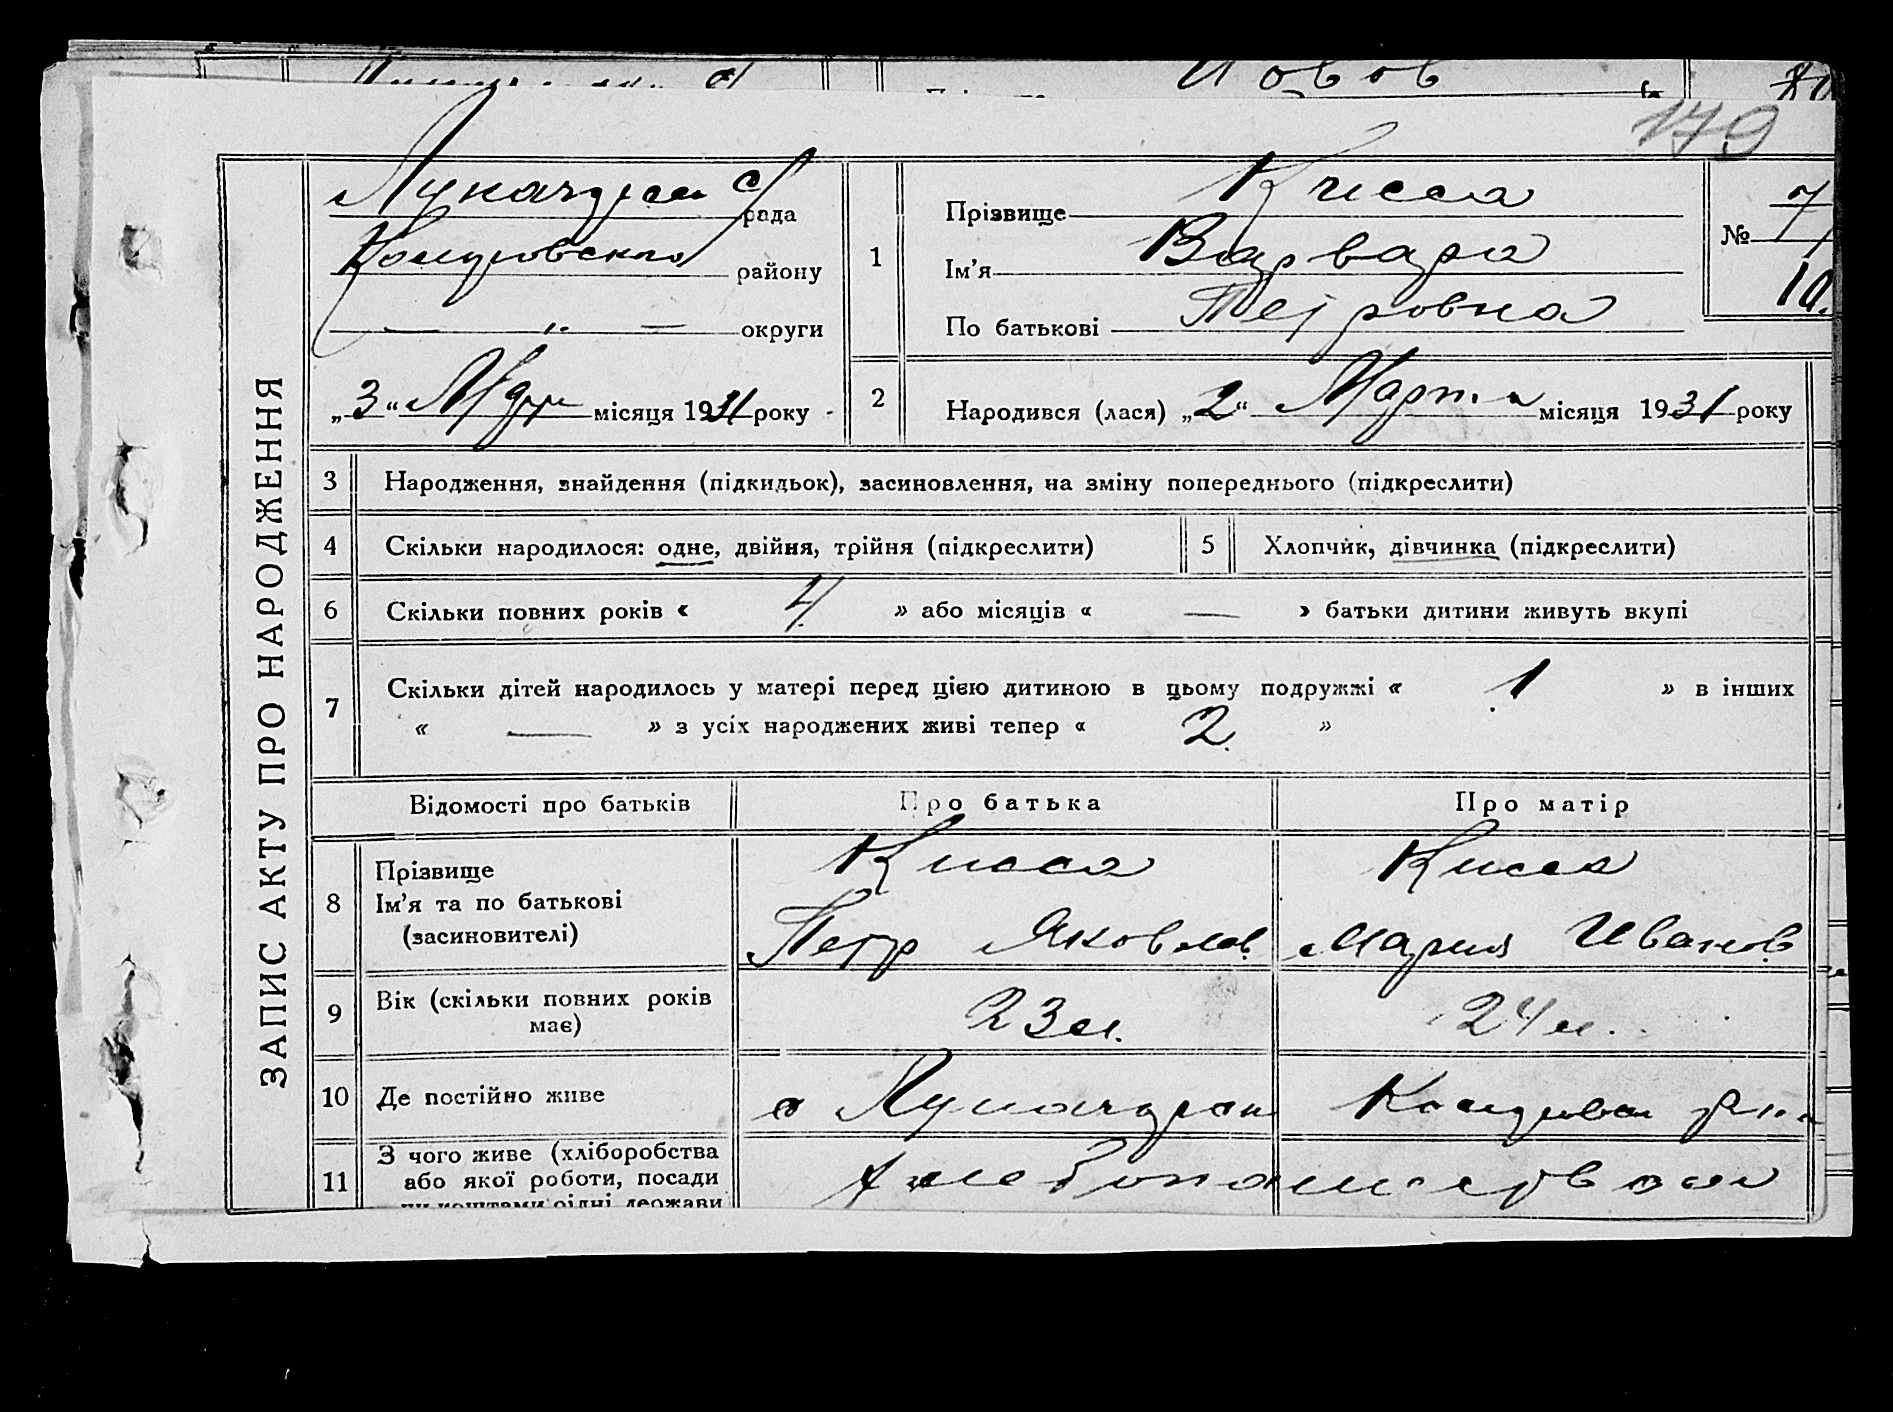 179
рада
района
району
округи
„3“ Март місяця 1931 року
ЗАПИС АКТУ ПРО НАРОДЖЕННЯ
1
Прізвище Кисса
Ім’я Варвара
По батькові Петровна
№ 7
10.
2 Народився (лася) „2“ Марта місяця 1931 року
3 Народження, знайдення (підкидьок), засиновлення, на зміну попереднього (підкреслити)
4 Скільки народилося: одне, двійня, трійня (підкреслити) 5 Хлопчик, дівчинка (підкреслити)
6 Скільки повних років « 4 » або місяців « — » батьки дитини живуть вкупі
7 Скільки дітей народилось у матері перед цією дитиною в цьому подружжі « 1 » в інших
« — » з усіх народжених живі тепер « 2 »
Відомості про батьків Про батька Про матір
8 Прізвище Кисса Кисса
Ім’я та по батькові
(засиновителі) Петр Яковлев. Мария Иванов.
9 Вік (скільки повних років 23 24
має)
10 Де постійно живе с
11 З чого живе (хліборобства
або якої роботи, посади
чи коштами рідні держави